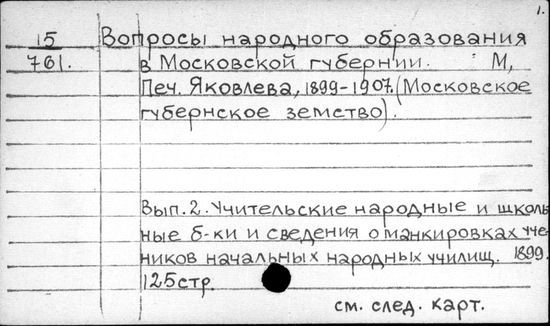 1.
15 Вопросы народного образования
761. в Московской губернии. М,
Печ. Яковлева, 1899-1907. (Московское
губернское земство).
Вып. 2. Учительские народные и школь
ные б-ки и сведения о манкировках уче
ников начальных народных училищ. 1899.
125 стр.
см. след. карт.